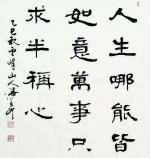 人生哪能皆
如意萬事只
求半稱心
乙巳秋山人